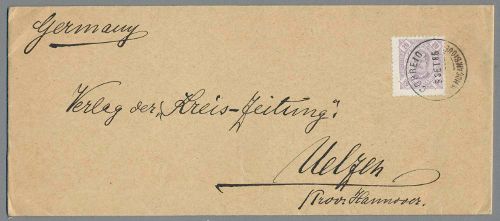 Germany
CORREIO
9 SET 86
Verlag der "Kreis-Zeitung".
Uelzen
Prov. Hannover.